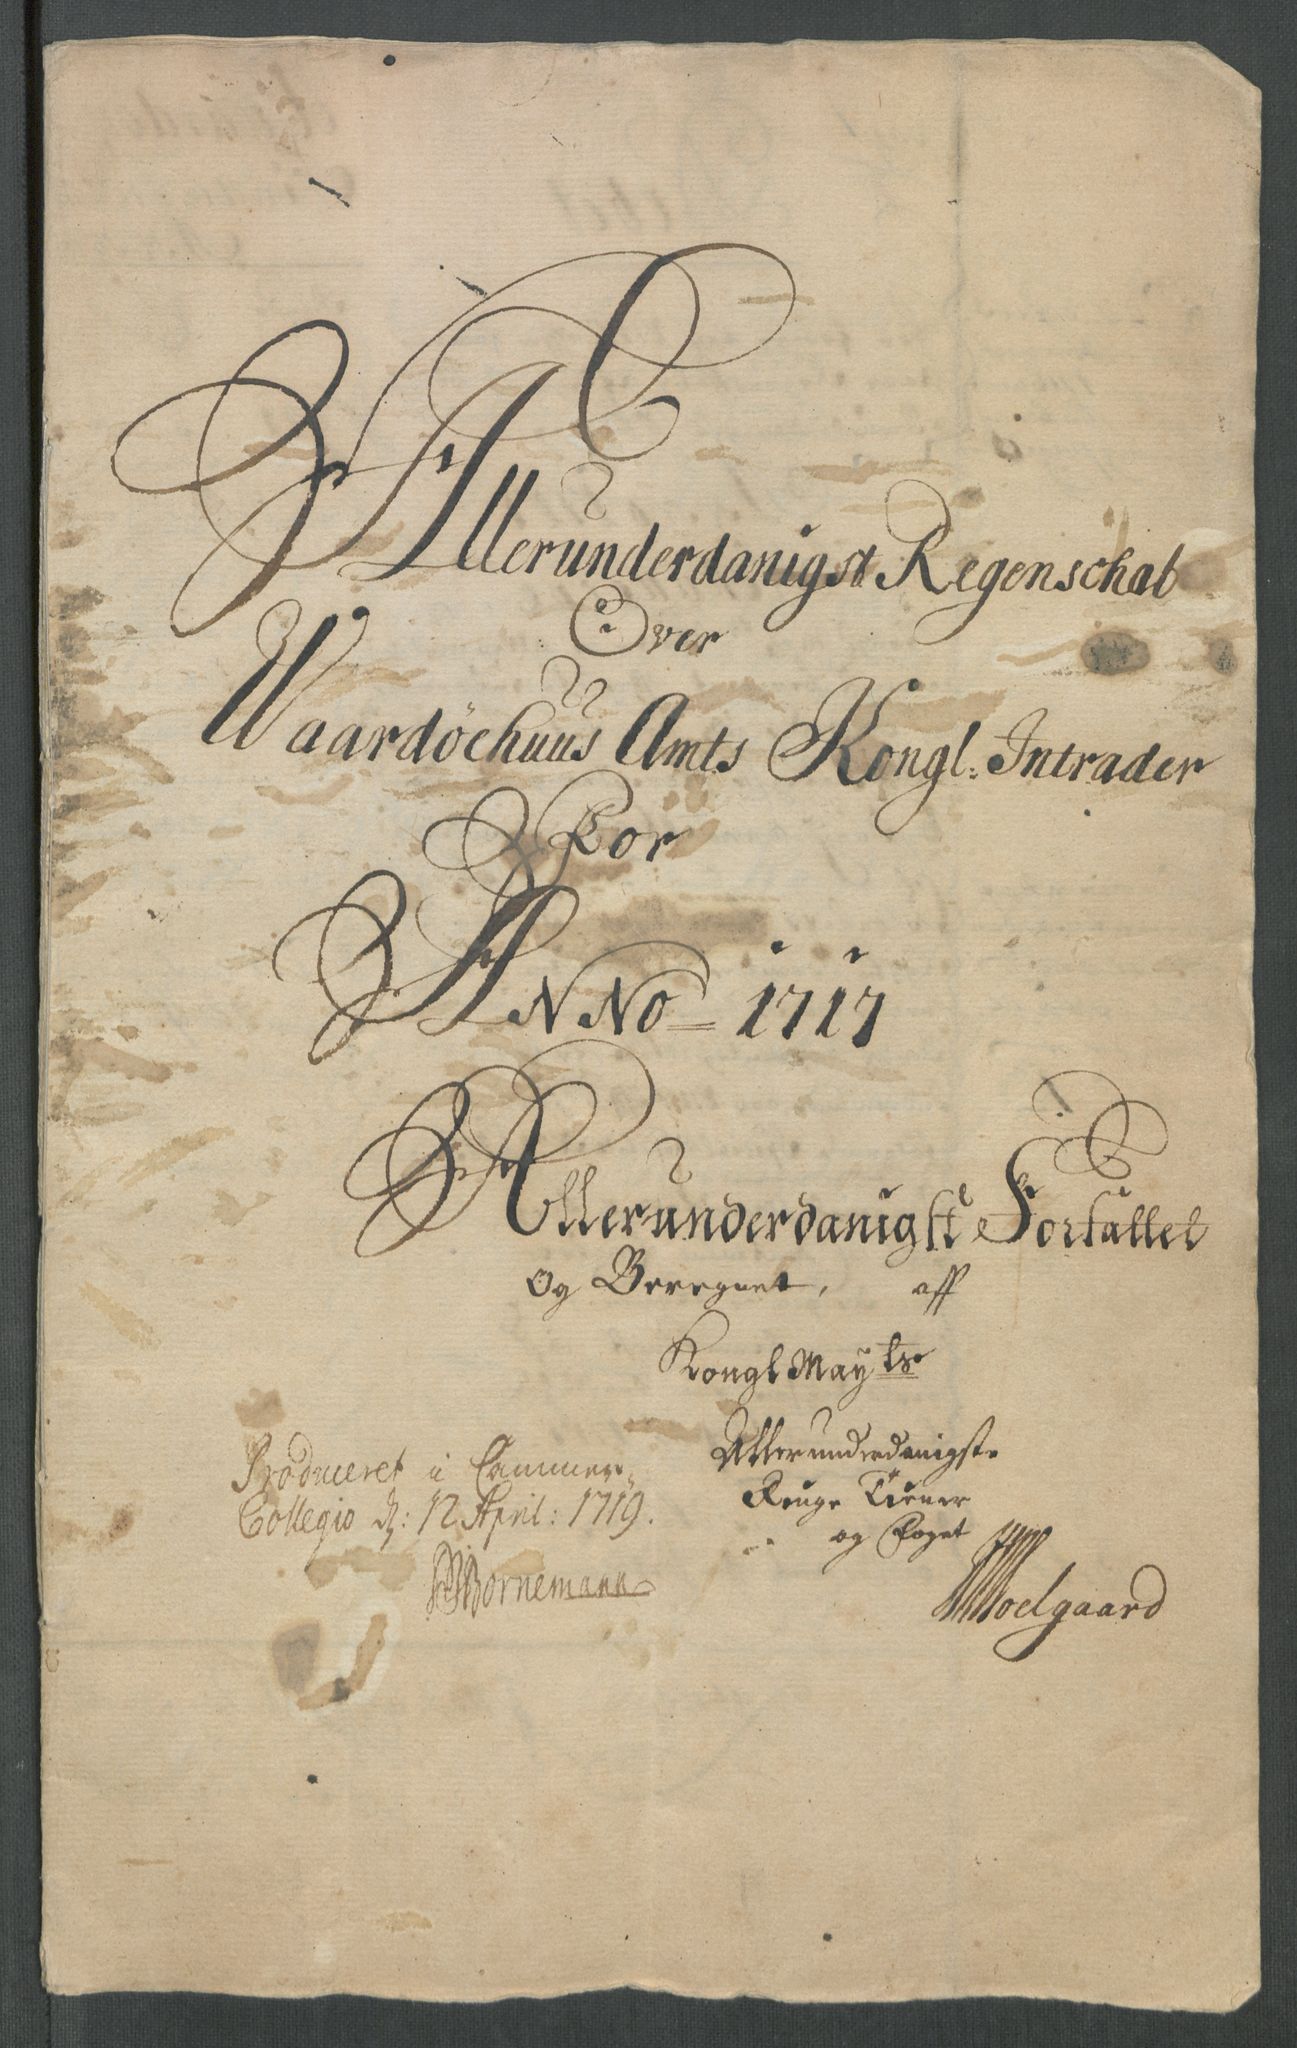 Allerunderdanigst Regenschab
Over
Waardöehuus Amts Kongl: Intrader
For
ANNO 1717
Allerunderdanigst Forfattet
Og Beregnet, aff
Kongl Mayts
Allerunderdanigste
Ringe Tiener
og Foget
Moelgaard
Produceret i Cammer
Collegio d: 12 April: 1719.
Bornemann